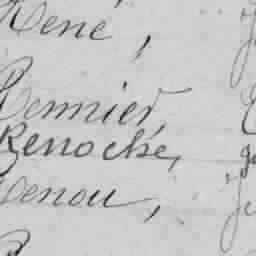 René,
Rennier,
Renoché,
Renou,